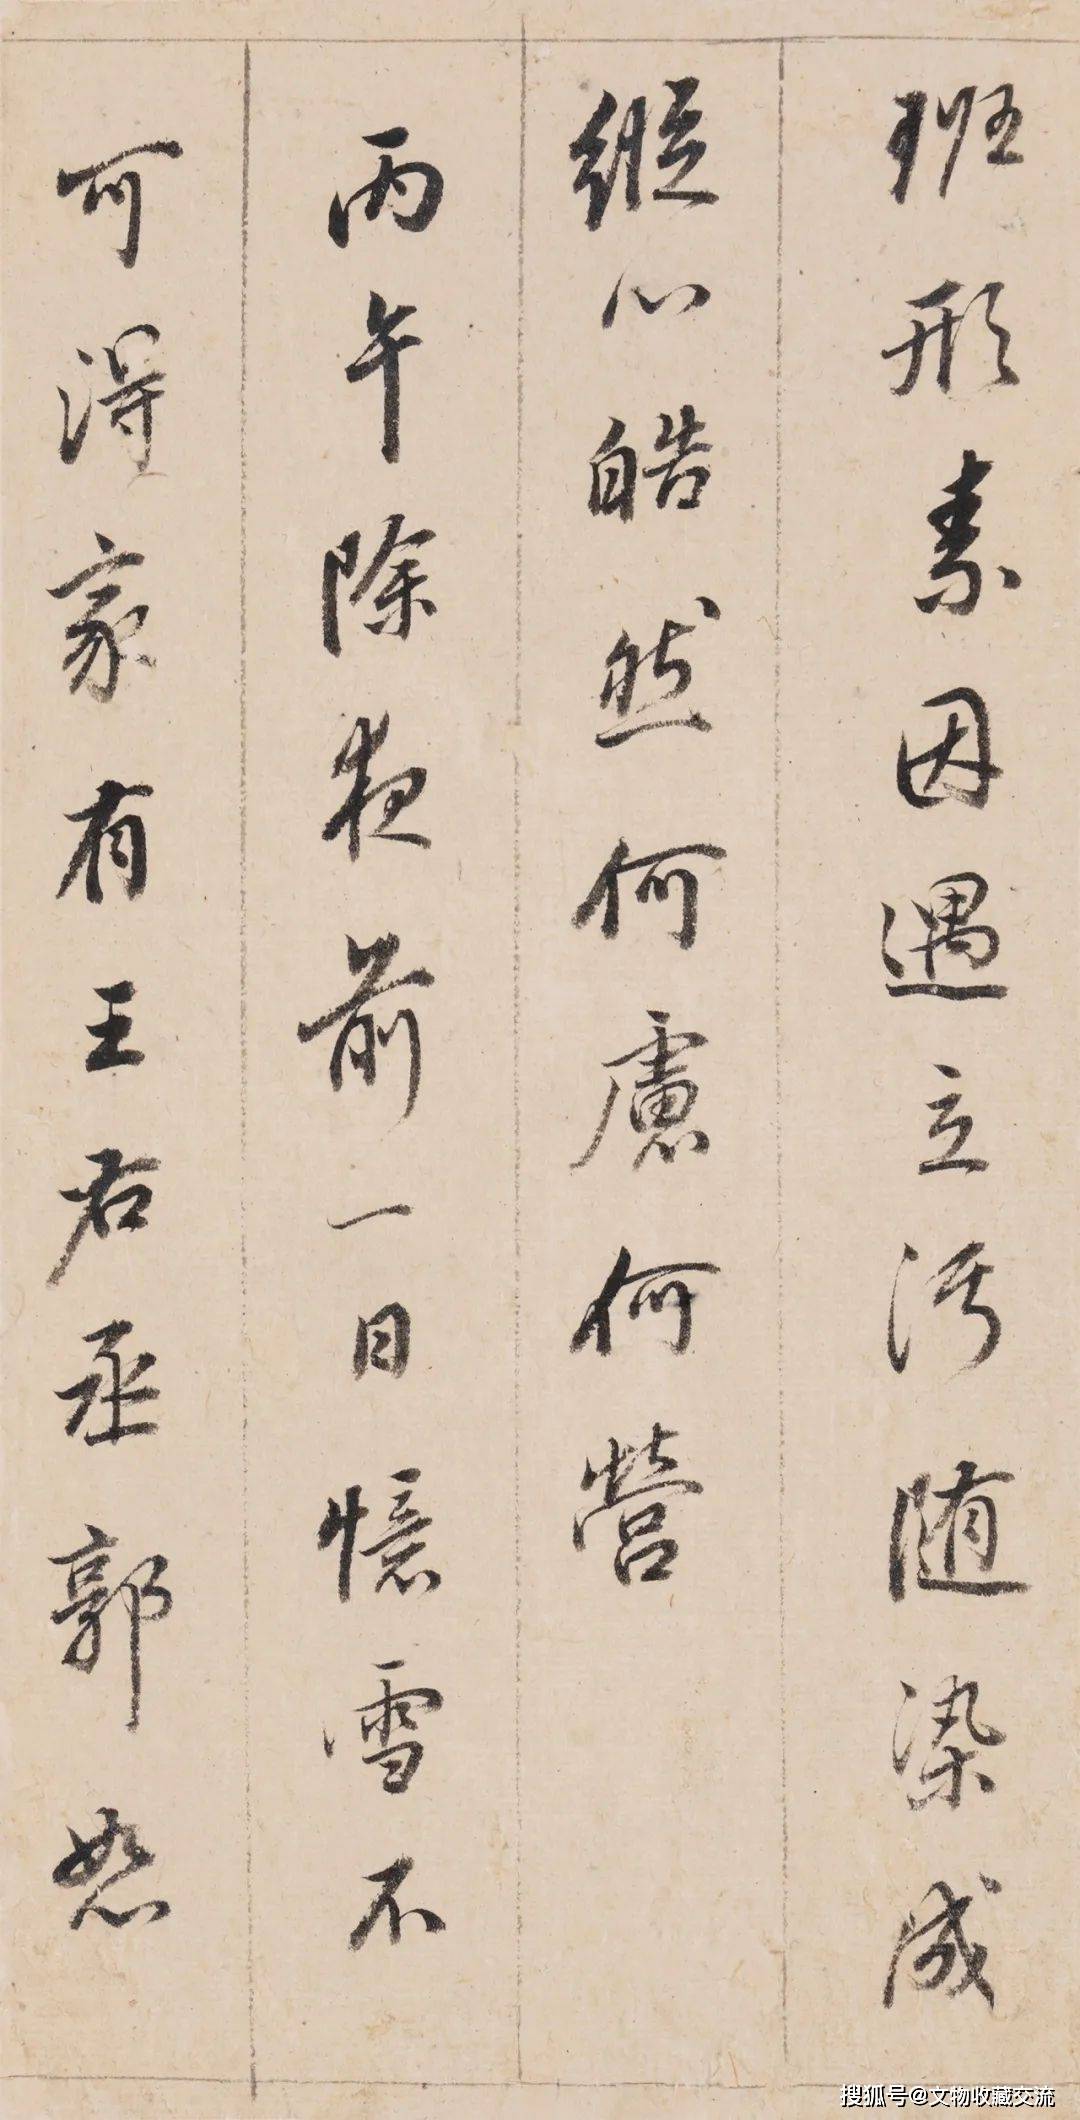 班形素因遇立污随染成
縱心皓然何慮何營
丙午除夜前一日憶雪不
可得家有王右丞郭恕
搜狐号@文物收藏交流